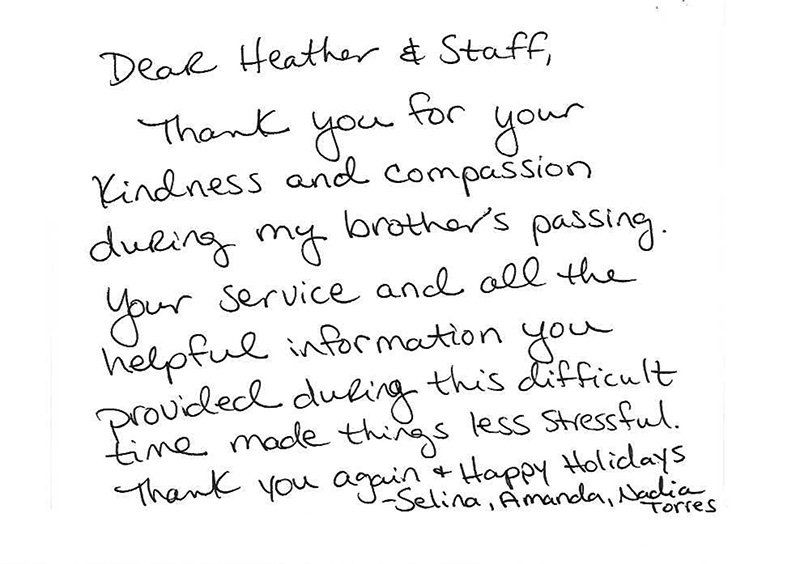 Dear Heather & Staff,
Thank you for your
kindness and compassion
during my brother's passing.
Your service and all the
helpful information you
provided during this difficult
time made things less stressful.
Thank you again + Happy Holidays
-Selina, Amanda, Nadia
Torres